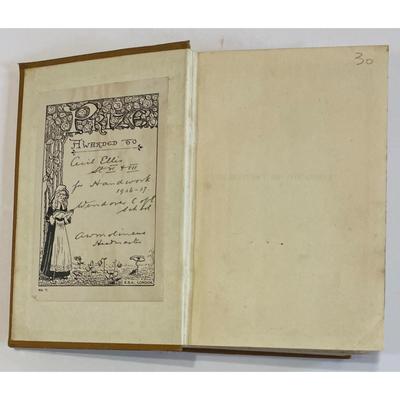 PRIZE
AWARDED TO
Cecil Ellis
St VI & VII
for Handwork
1926-27
Wendover C of E
School
Headmaster
E.S.A. LONDON.
30